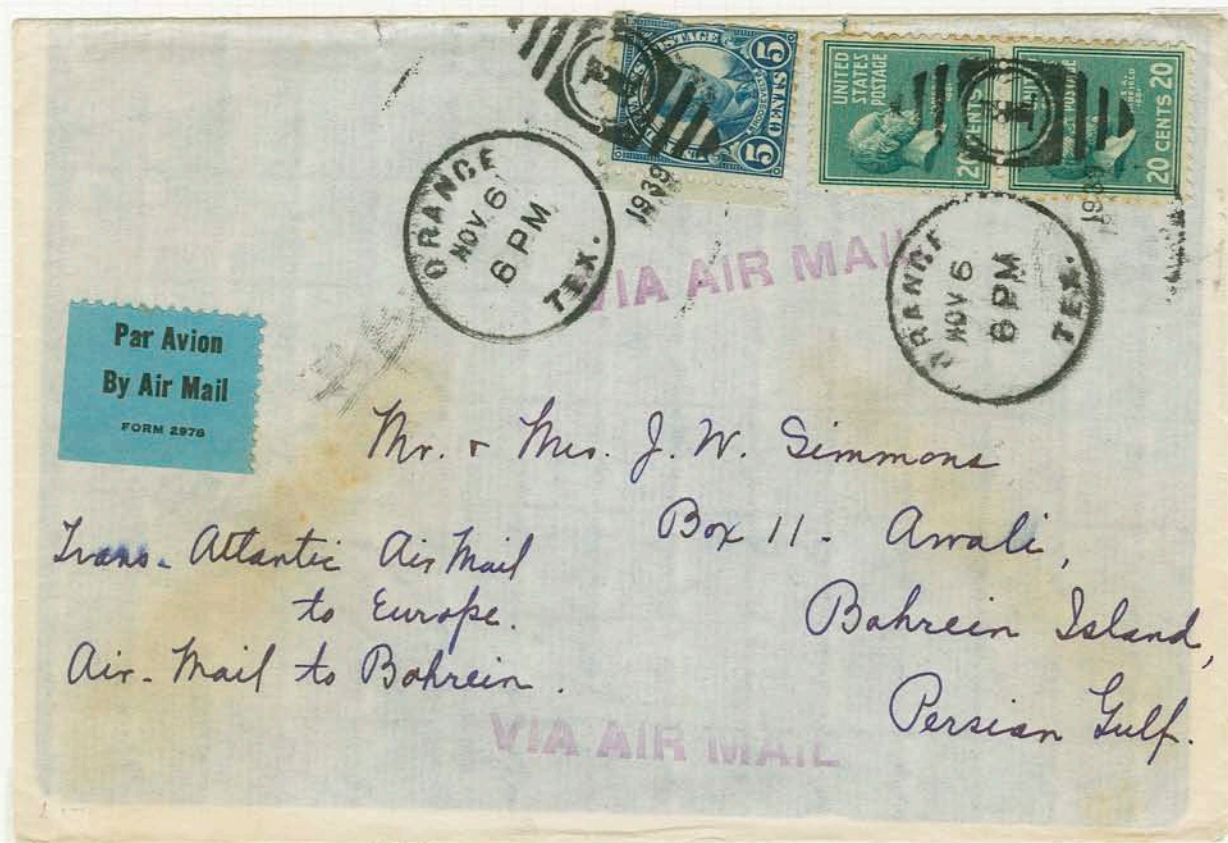 POSTAGE
ROOSEVELT
5 CENTS 5
UNITED
STATES
POSTAGE
20 CENTS
POSTAGE
20 CENTS 20
1
1
ORANGE
NOV 6
6 PM
TEX.
1939
ORANGE
NOV 6
6 PM
TEX.
1939
VIA AIR MAIL
Par Avion
By Air Mail
FORM 2978
Mr. & Mrs. J. W. Simmons
Box 11 - Awali,
Bahrein Island,
Persian Gulf.
Trans-Atlantic Air Mail
to Europe.
Air-Mail to Bahrein.
VIA AIR MAIL